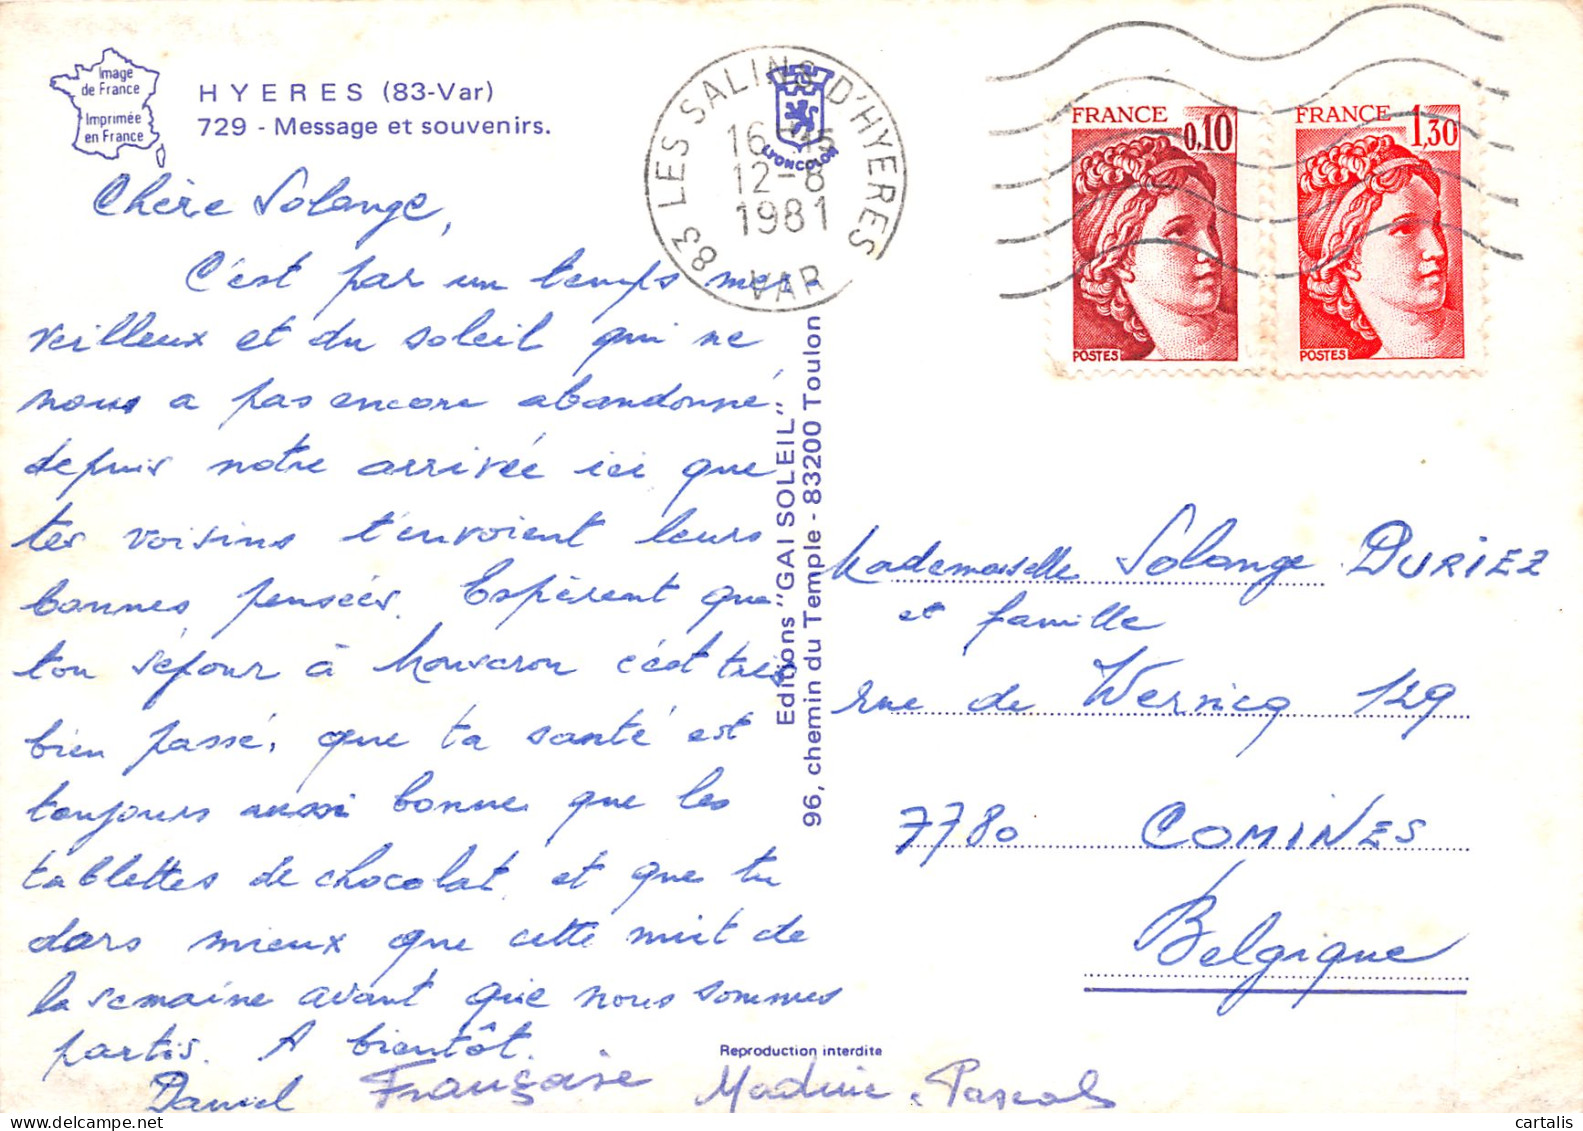 Image
de France
Imprimée
en France
HYERES (83-Var)
729 - Message et souvenirs.
83 LES SALINS D'HYERES
16-45
12-8
1981
VAR
LYONCOLOR
FRANCE 0,10
POSTES
FRANCE 1,30
POSTES
Chère Solange,
C'est par un temps mer-
veilleux et du soleil qui ne
nous a pas encore abandonné
depuis notre arrivée ici que
tes voisins t'envoient leurs
bonnes pensées. Espèrent que
ton séjour à Mouscron c'est très
bien passé, que ta santé est
toujours aussi bonne que les
tablettes de chocolat et que tu
dors mieux que cette nuit de
la semaine avant que nous sommes
partis. A bientôt.
Daniel Françoise Martine Pascal
Editions "GAI SOLEIL"
96, chemin du Temple - 83200 Toulon
Mademoiselle Solange DURIEZ
et famille
rue de Wervicq 129
7780 COMINES
Belgique
Reproduction interdite
cartalis